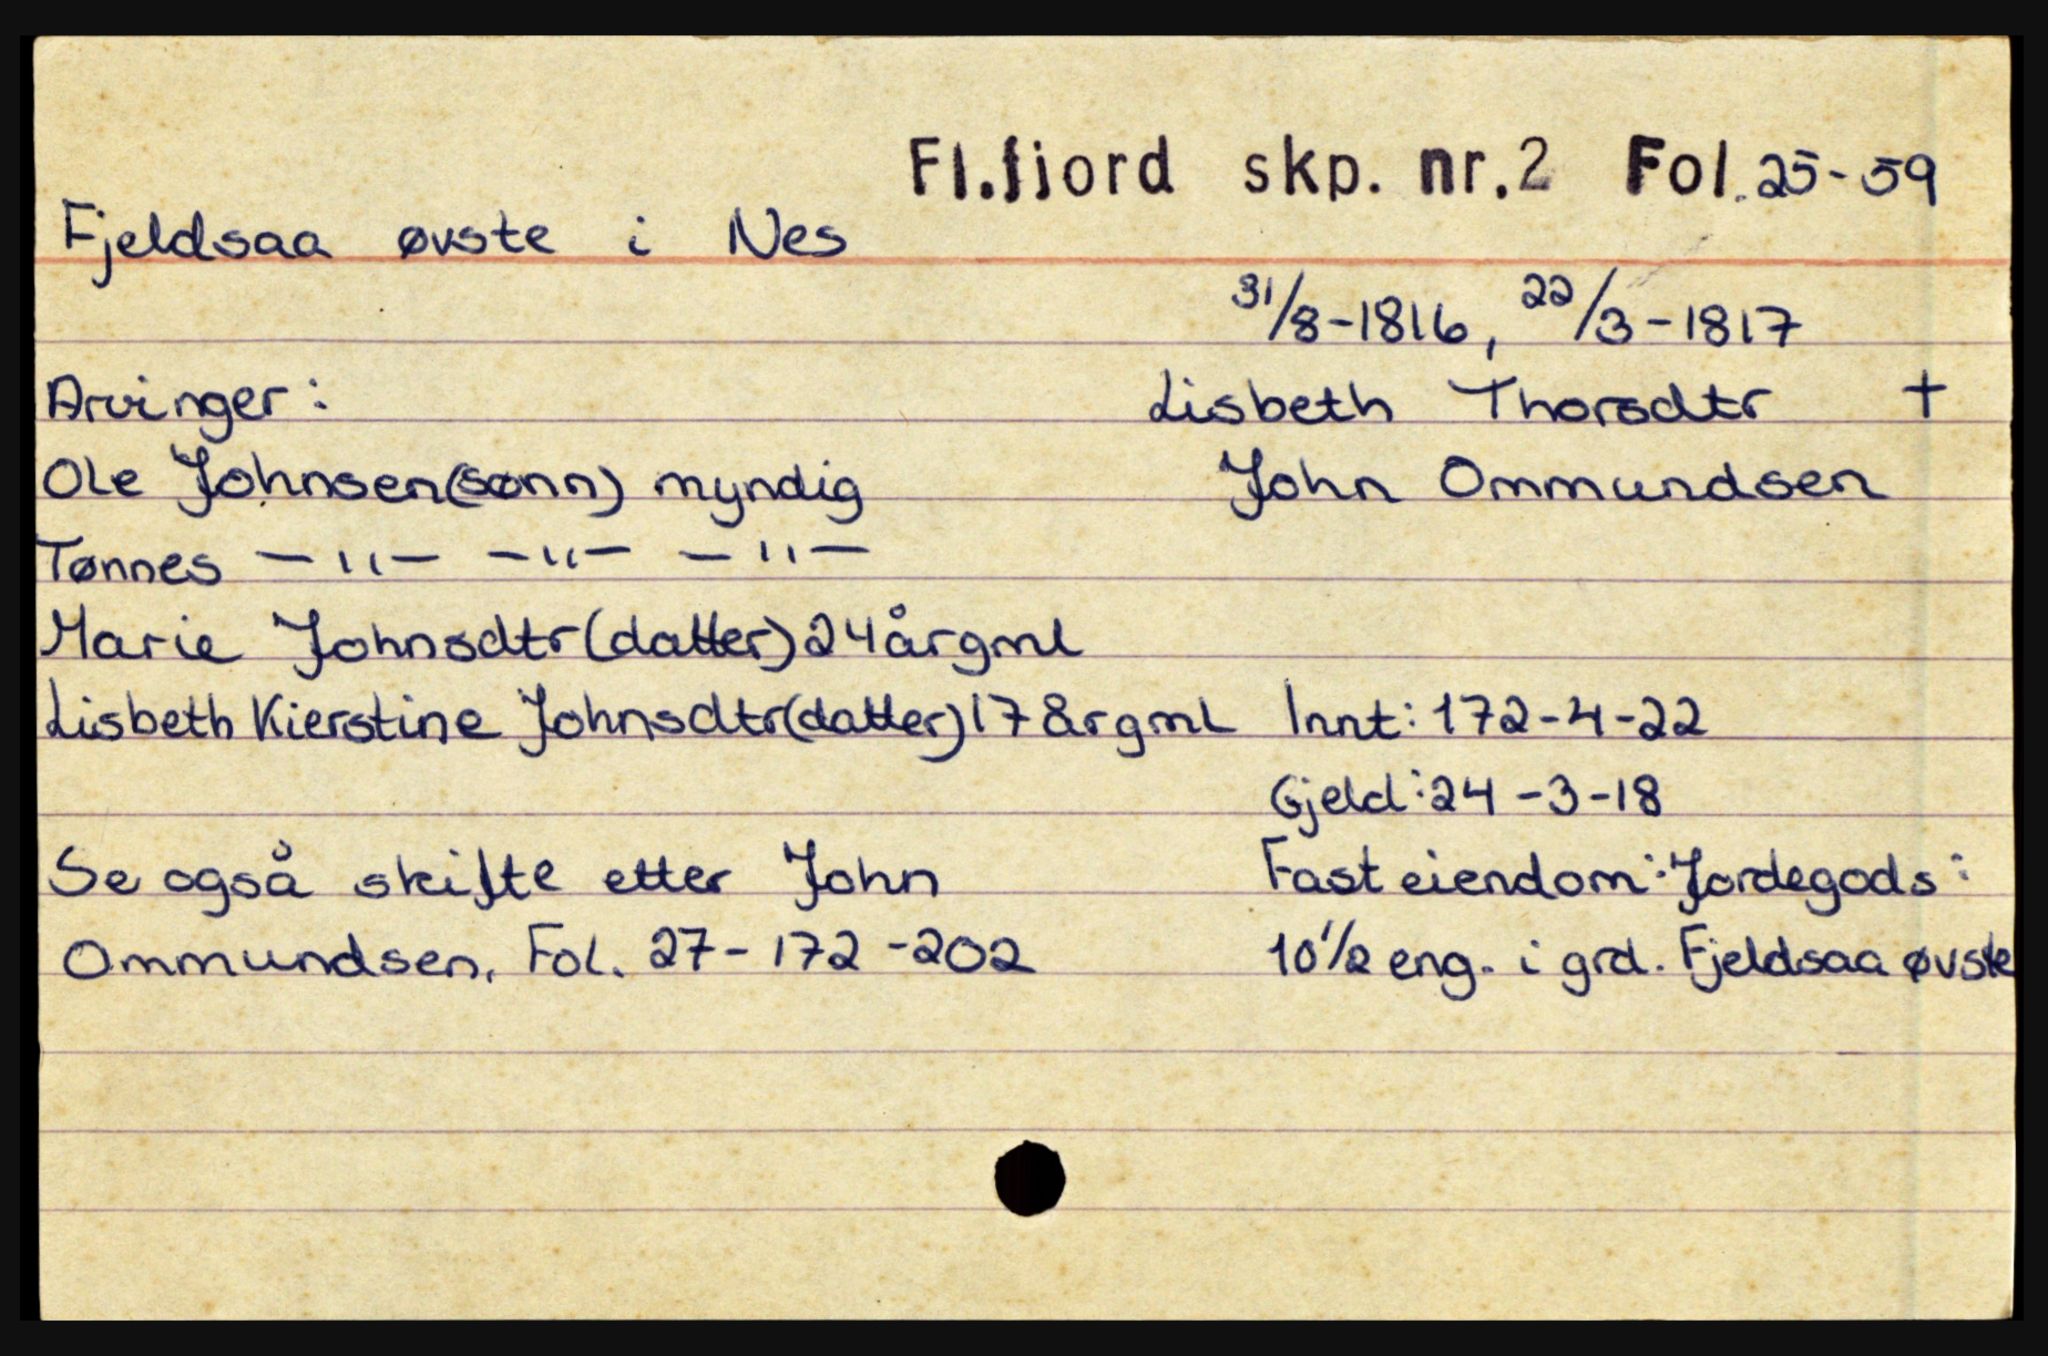 Fl.fjord skp. nr.2 Fol.25-59
Fjeldsaa øvste i Nes
31/8-1816, 22/3-1817
Arvinger: Lisbeth Thorsdtr †
Ole Johnsen(sønn) myndig John Ommundsen
Tønnes —"— —"— —"—
Marie Johnsdtr(datter)24årgml
Lisbeth Kierstine Johnsdtr(datter)17årgml Innt: 172-4-22
Gjeld: 24-3-18
Se også skifte etter John Fast eiendom: Jordegods:
Ommundsen, Fol. 27-172-202 10 1/2 eng. i grd. Fjeldsaa øvste